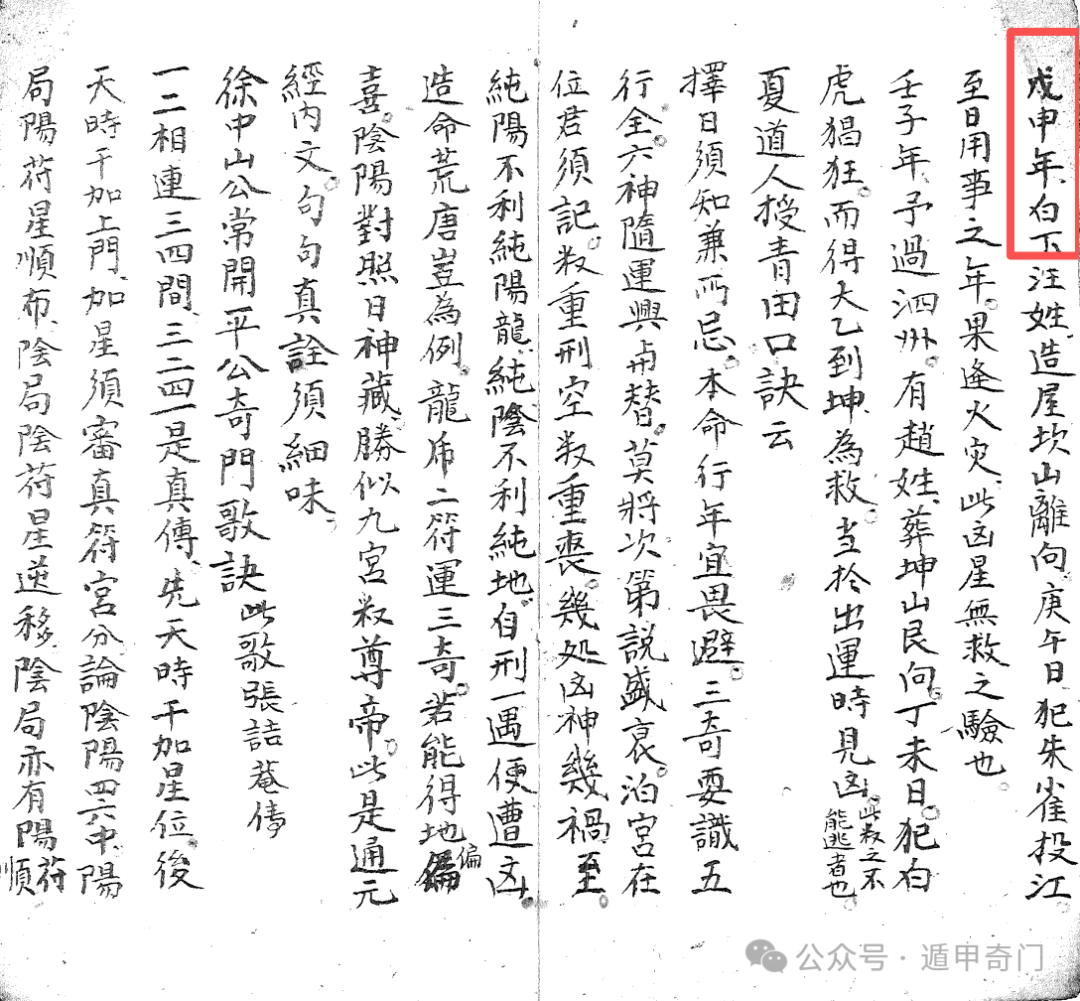 戊申年白下汪姓造屋坎山離向庚午日犯朱雀投江
至日用事之年。果逢火灾、此凶星無救之驗也。
壬子年、予過泗州。有趙姓、葬坤山艮向。丁未日。犯白
虎猖狂。而得大乙到坤、為救。当於出運時見凶。此数之不能逃者也。
夏道人授青田口訣云
擇日須知兼所忌。本命行年宜畏避。三奇要識五
行全。六神隨運興與替。莫將次第説盛衰。泊宮在
位君須記。数重刑空数重喪。幾処凶神幾禍至。
純陽不利純陽龍、純陰不利純地。自刑一遇便遭凶。
造命荒唐豈為例。龍虎二符運三奇。若能得地偏偏
喜。陰陽對照日神藏、勝似九宮数尊帝。此是通元
經内文。句句真詮須細味。
徐中山公常開平公奇門歌訣 此歌張喆菴傳
一二相連三四間、三二四一是真傳、先天時干加星位。後
天時干加上門、加星須審真符宮、分論陰陽四六中、陽
局陽符星順布、陰局陰符星逆移、陰局亦有陽符順
公众号·遁甲奇门